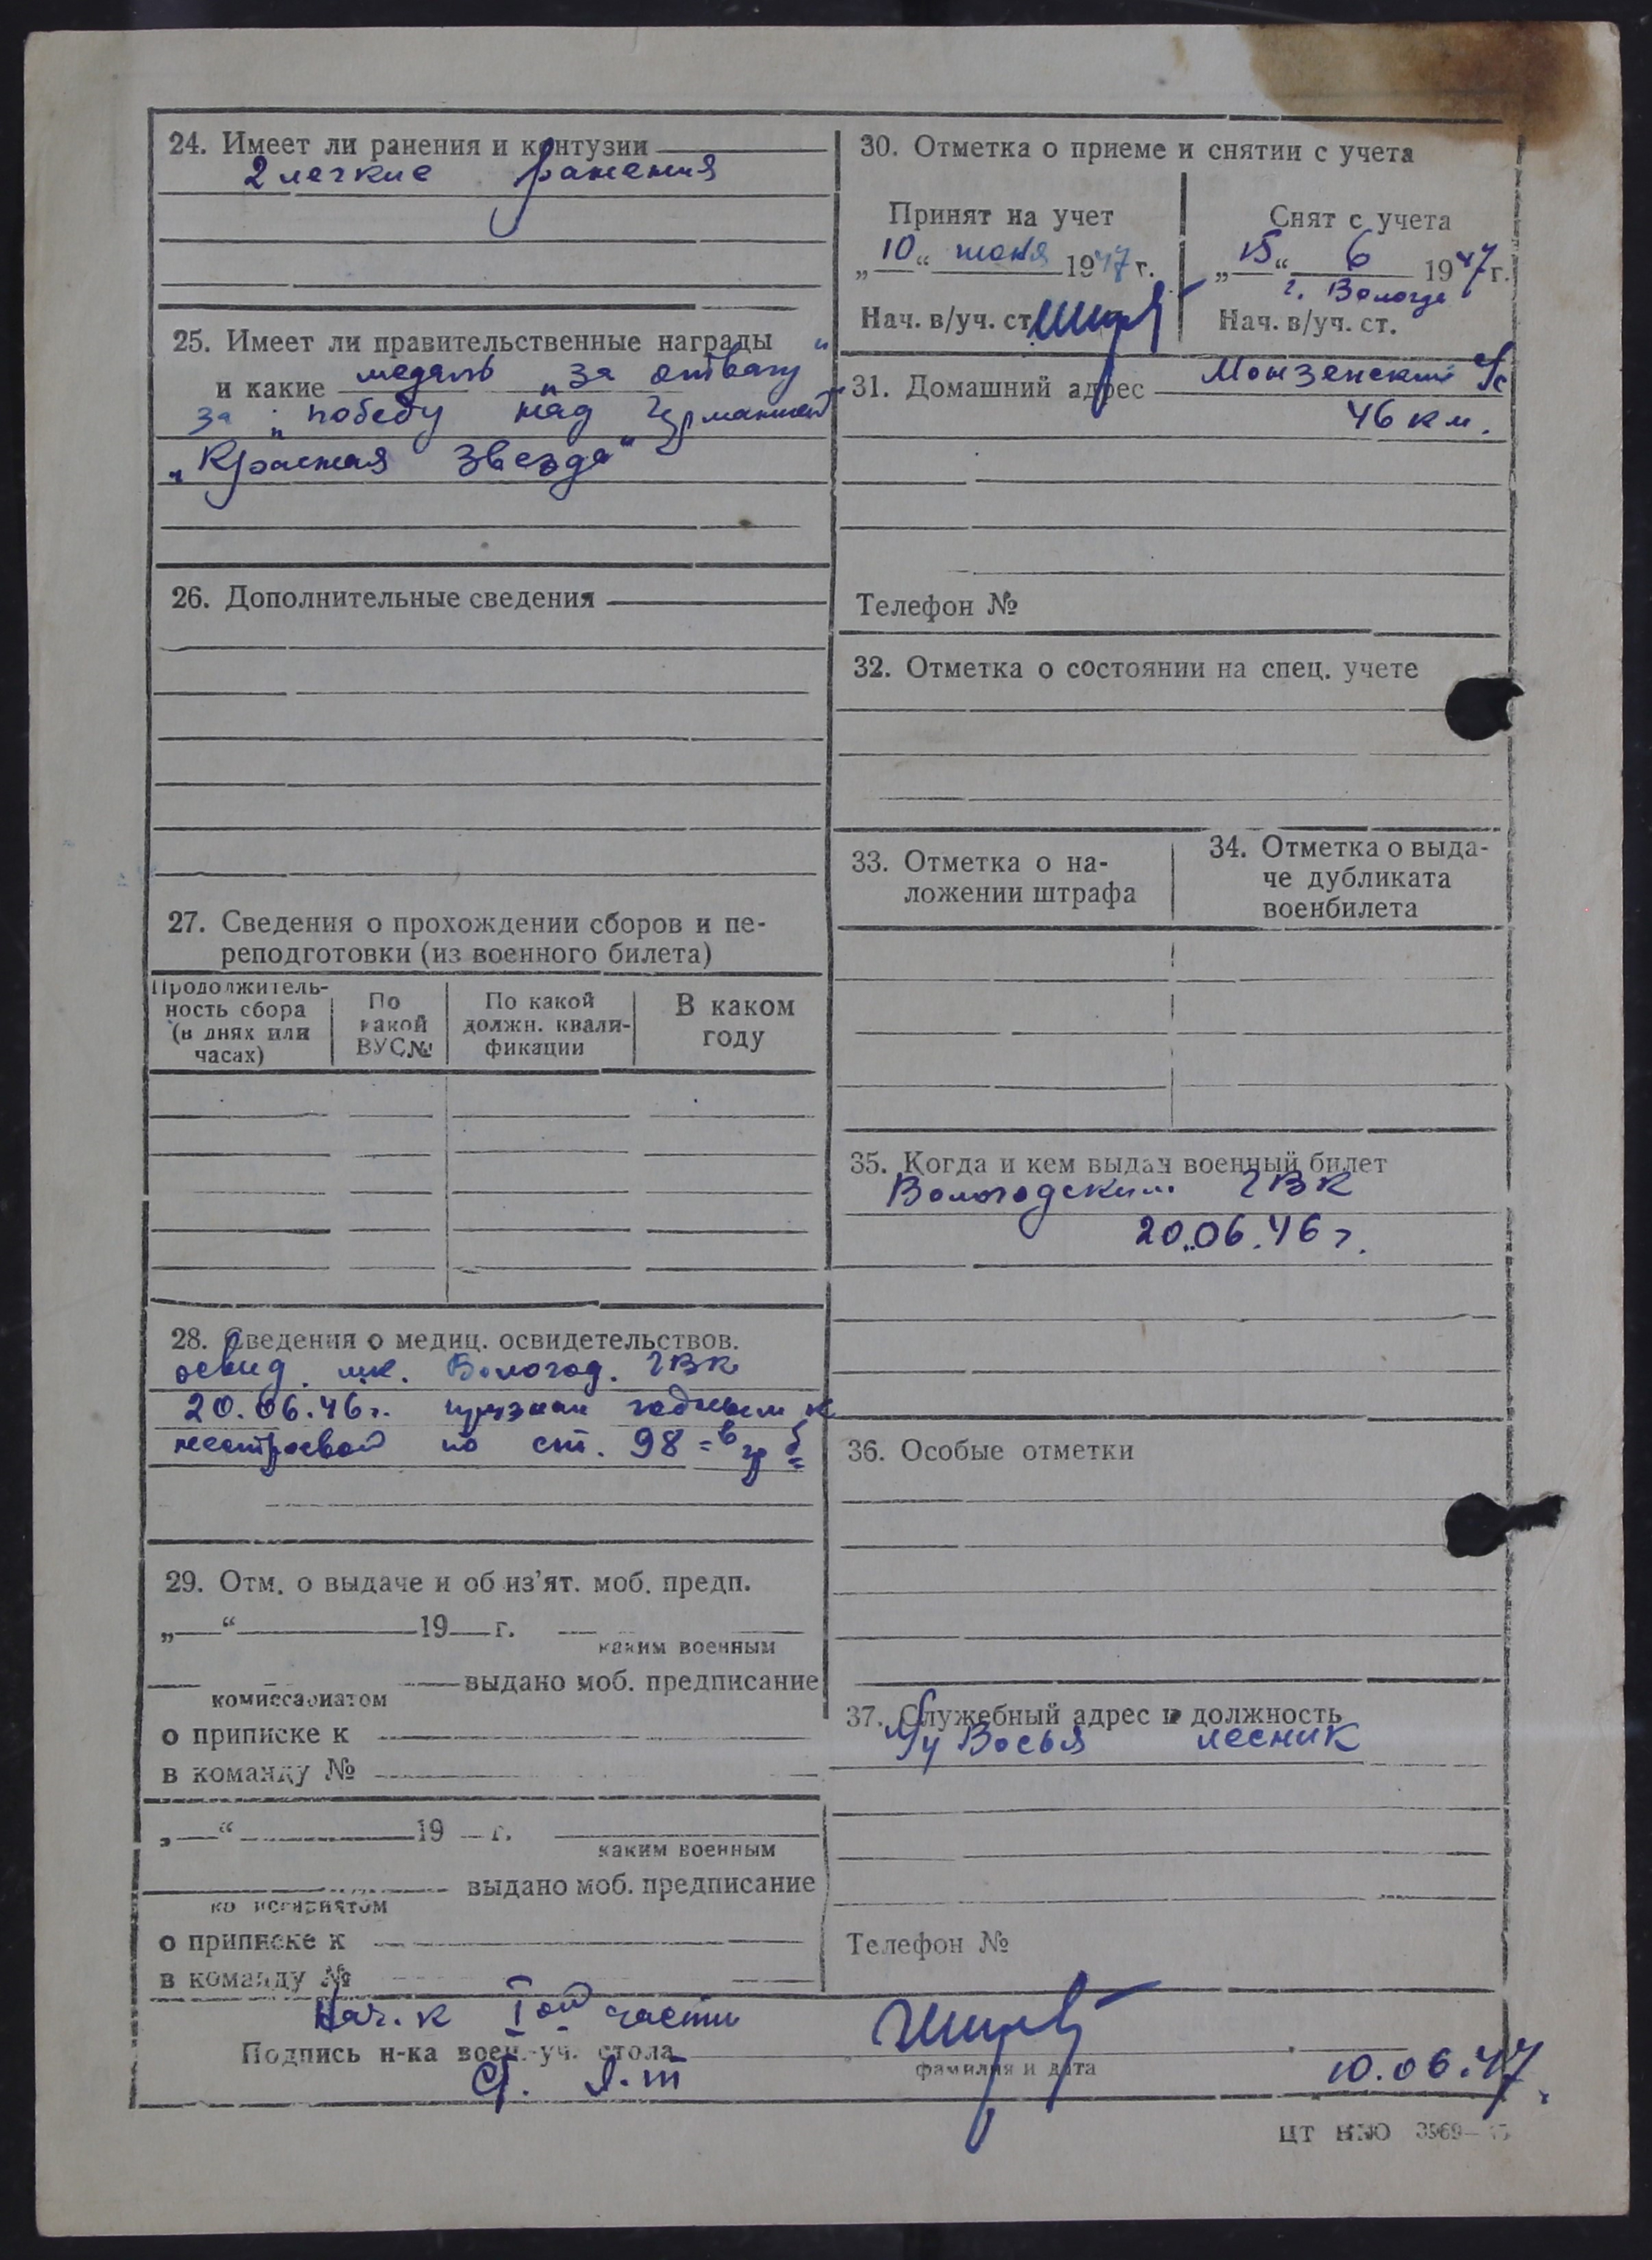 24. Имеет ли ранения и контузии
2 легкие ранения
25. Имеет ли правительственные награды
и какие медаль „за отвагу“
за „победу над Германией
„Красная Звезда“
26. Дополнительные сведения
27. Сведения о прохождении сборов и пе-
реподготовки (из военного билета)
Продолжитель-
ность сбора
(в днях или
часах)
По
какой
ВУС№
По какой
должн. квали-
фикации
В каком
году
28. Сведения о медиц. освидетельствов.
освид. м.к. Вологод. ГВК
20.06.46г. признан годным к
нестроевой по ст. 98
29. Отм. о выдаче и об из’ят. моб. предп.
„ “ 19 г.
каким военным
выдано моб. предписание
комиссариатом
о приписке к
в команду №
„ “ 19 г.
каким военным
выдано моб. предписание
комиссариатом
о приписке к
в команду №
30. Отметка о приеме и снятии с учета
Принят на учет
„10“ июня 1947 г.
Нач. в/уч. ст.
Снят с учета
„15“ 6 1947 г.
г. Вологда
Нач. в/уч. ст.
31. Домашний адрес Монзенский с/с
46 км.
Телефон №
32. Отметка о состоянии на спец. учете
33. Отметка о на-
ложении штрафа
34. Отметка о выда-
че дубликата
военбилета
35. Когда и кем выдан военный билет
Вологодским ГВК
20.06.46 г.
36. Особые отметки
37. Служебный адрес и должность
лесник
Телефон №
Нач.к Iой части
Подпись н-ка воен.-уч. стола
фамилия и дата
10.06.47
Ст. л-т
ЦТ НКО 3969